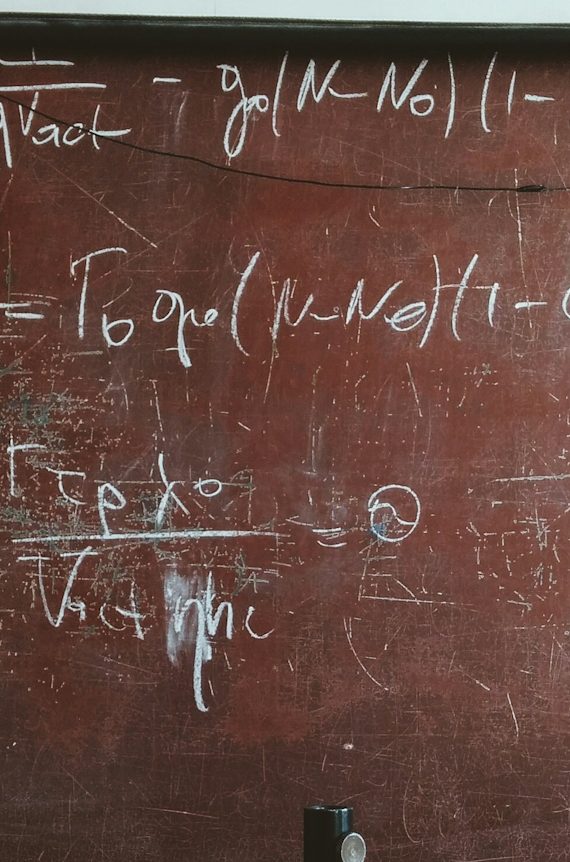 I/qVact - g0(N-N0)(1-
= Γ0 g0(N-N0)(1-
Γ τp λ0 / Vact ηhc = ⊝